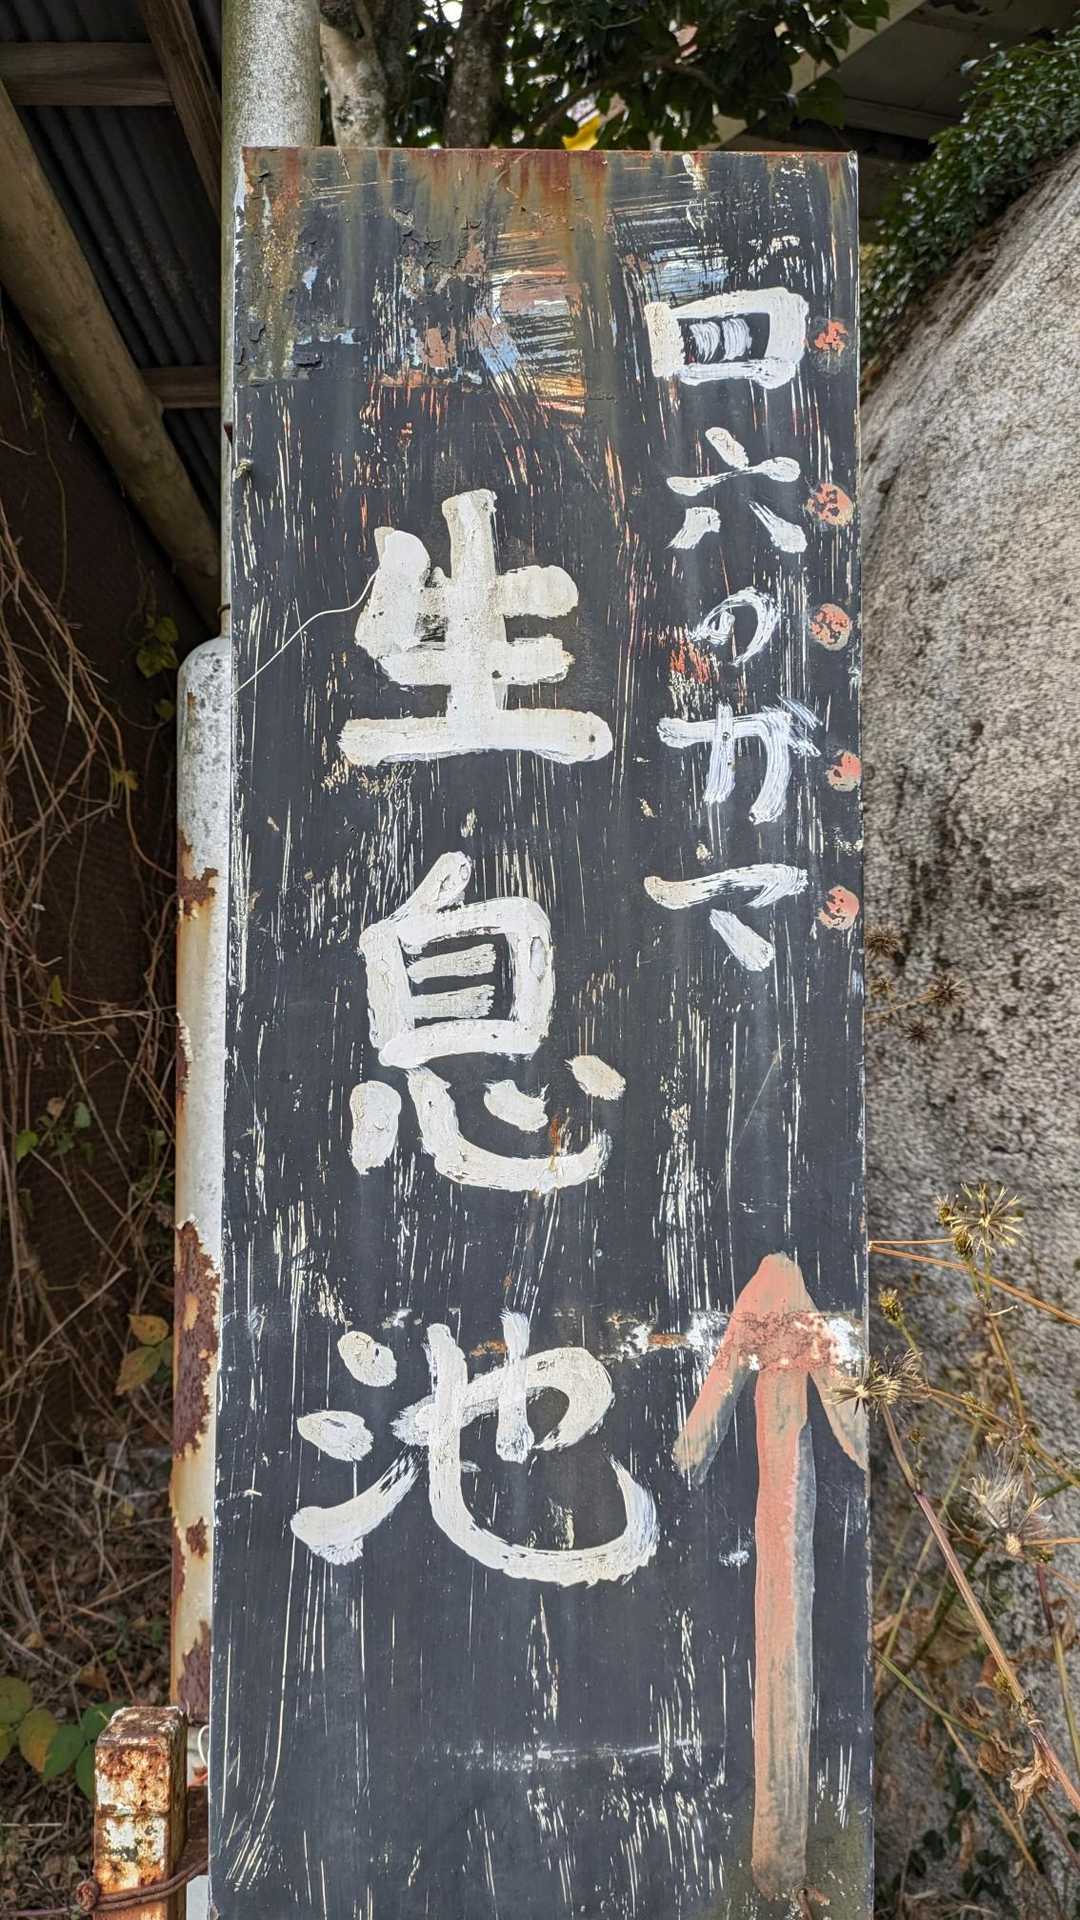 四六のガマ
生息池